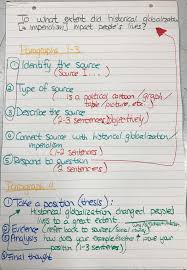 To what extent did historical globalization
[& imperialism] impact people's lives?
Paragraphs 1-3
① Identify the source
(Source 1...)
② Type of source
(... is a political cartoon/graph/
table/picture, etc.)
③ Describe the source
(2-3 sentences) (objectively)
④ Connect source with historical globalization/
imperialism
(1-2 sentences)
⑤ Respond to question
(2 sentences)
Paragraph 4
① Take a position (thesis):
Historical globalization changed peoples'
lives to a great extent.
② Evidence (refer back to sources/
③ Analysis how does your example/evidence prove your
position (1-3 sentences)
④ Final thought